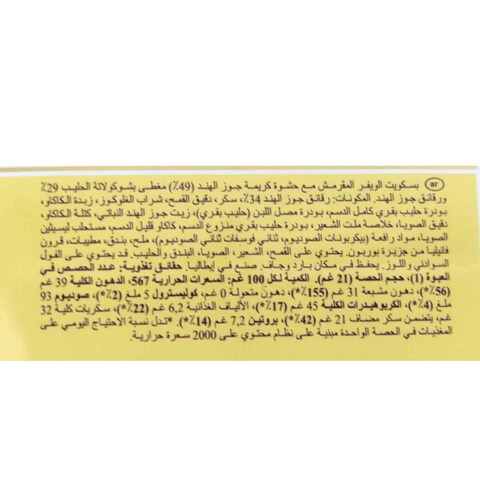 ar بسكويت الويفر المقرمش مع حشوة كريمة جوز الهند (49٪) مغطى بشوكولاتة الحليب 29٪
ورقائق جوز الهند. المكونات: رقائق جوز الهند 34٪، سكر، دقيق القمح، شراب الغلوكوز، زبدة الكاكاو،
بودرة حليب بقري كامل الدسم، بودرة مصل اللبن (حليب بقري)، زيت جوز الهند النباتي، كتلة الكاكاو،
دقيق الصويا، خلاصة ملت الشعير، بودرة حليب بقري منزوع الدسم، كاكاو قليل الدسم، مستحلب ليسيثين
الصويا، مواد رافعة (بيكربونات الصوديوم، ثنائي فوسفات ثنائي الصوديوم)، ملح، بندق، مطيبات، قرون
فانيليا من جزيرة بوربون. يحتوي على القمح، الشعير، الصويا، البندق والحليب. قد يحتوي على الفول
السوداني واللوز. يحفظ في مكان بارد وجاف. صنع في إيطاليا. حقائق تغذوية: عدد الحصص في
العبوة (1)، حجم الحصة (21 غم). الكمية لكل 100 غم: السعرات الحرارية 567، الدهون الكلية 39 غم
(56٪*)، دهون مشبعة 31 غم (155٪*)، دهون متحولة 0 غم، كوليسترول 5 ملغ (2٪*)، صوديوم 93
ملغ (4٪*)، الكربوهيدرات الكلية 45 غم (17٪*)، الألياف الغذائية 6,2 غم (22٪*)، سكريات كلية 32
غم، يتضمن سكر مضاف 21 غم (42٪*)، بروتين 7,2 غم (14٪*). *تدل نسبة الاحتياج اليومي على
المغذيات في الحصة الواحدة مبنية على نظام محتوي على 2000 سعرة حرارية.